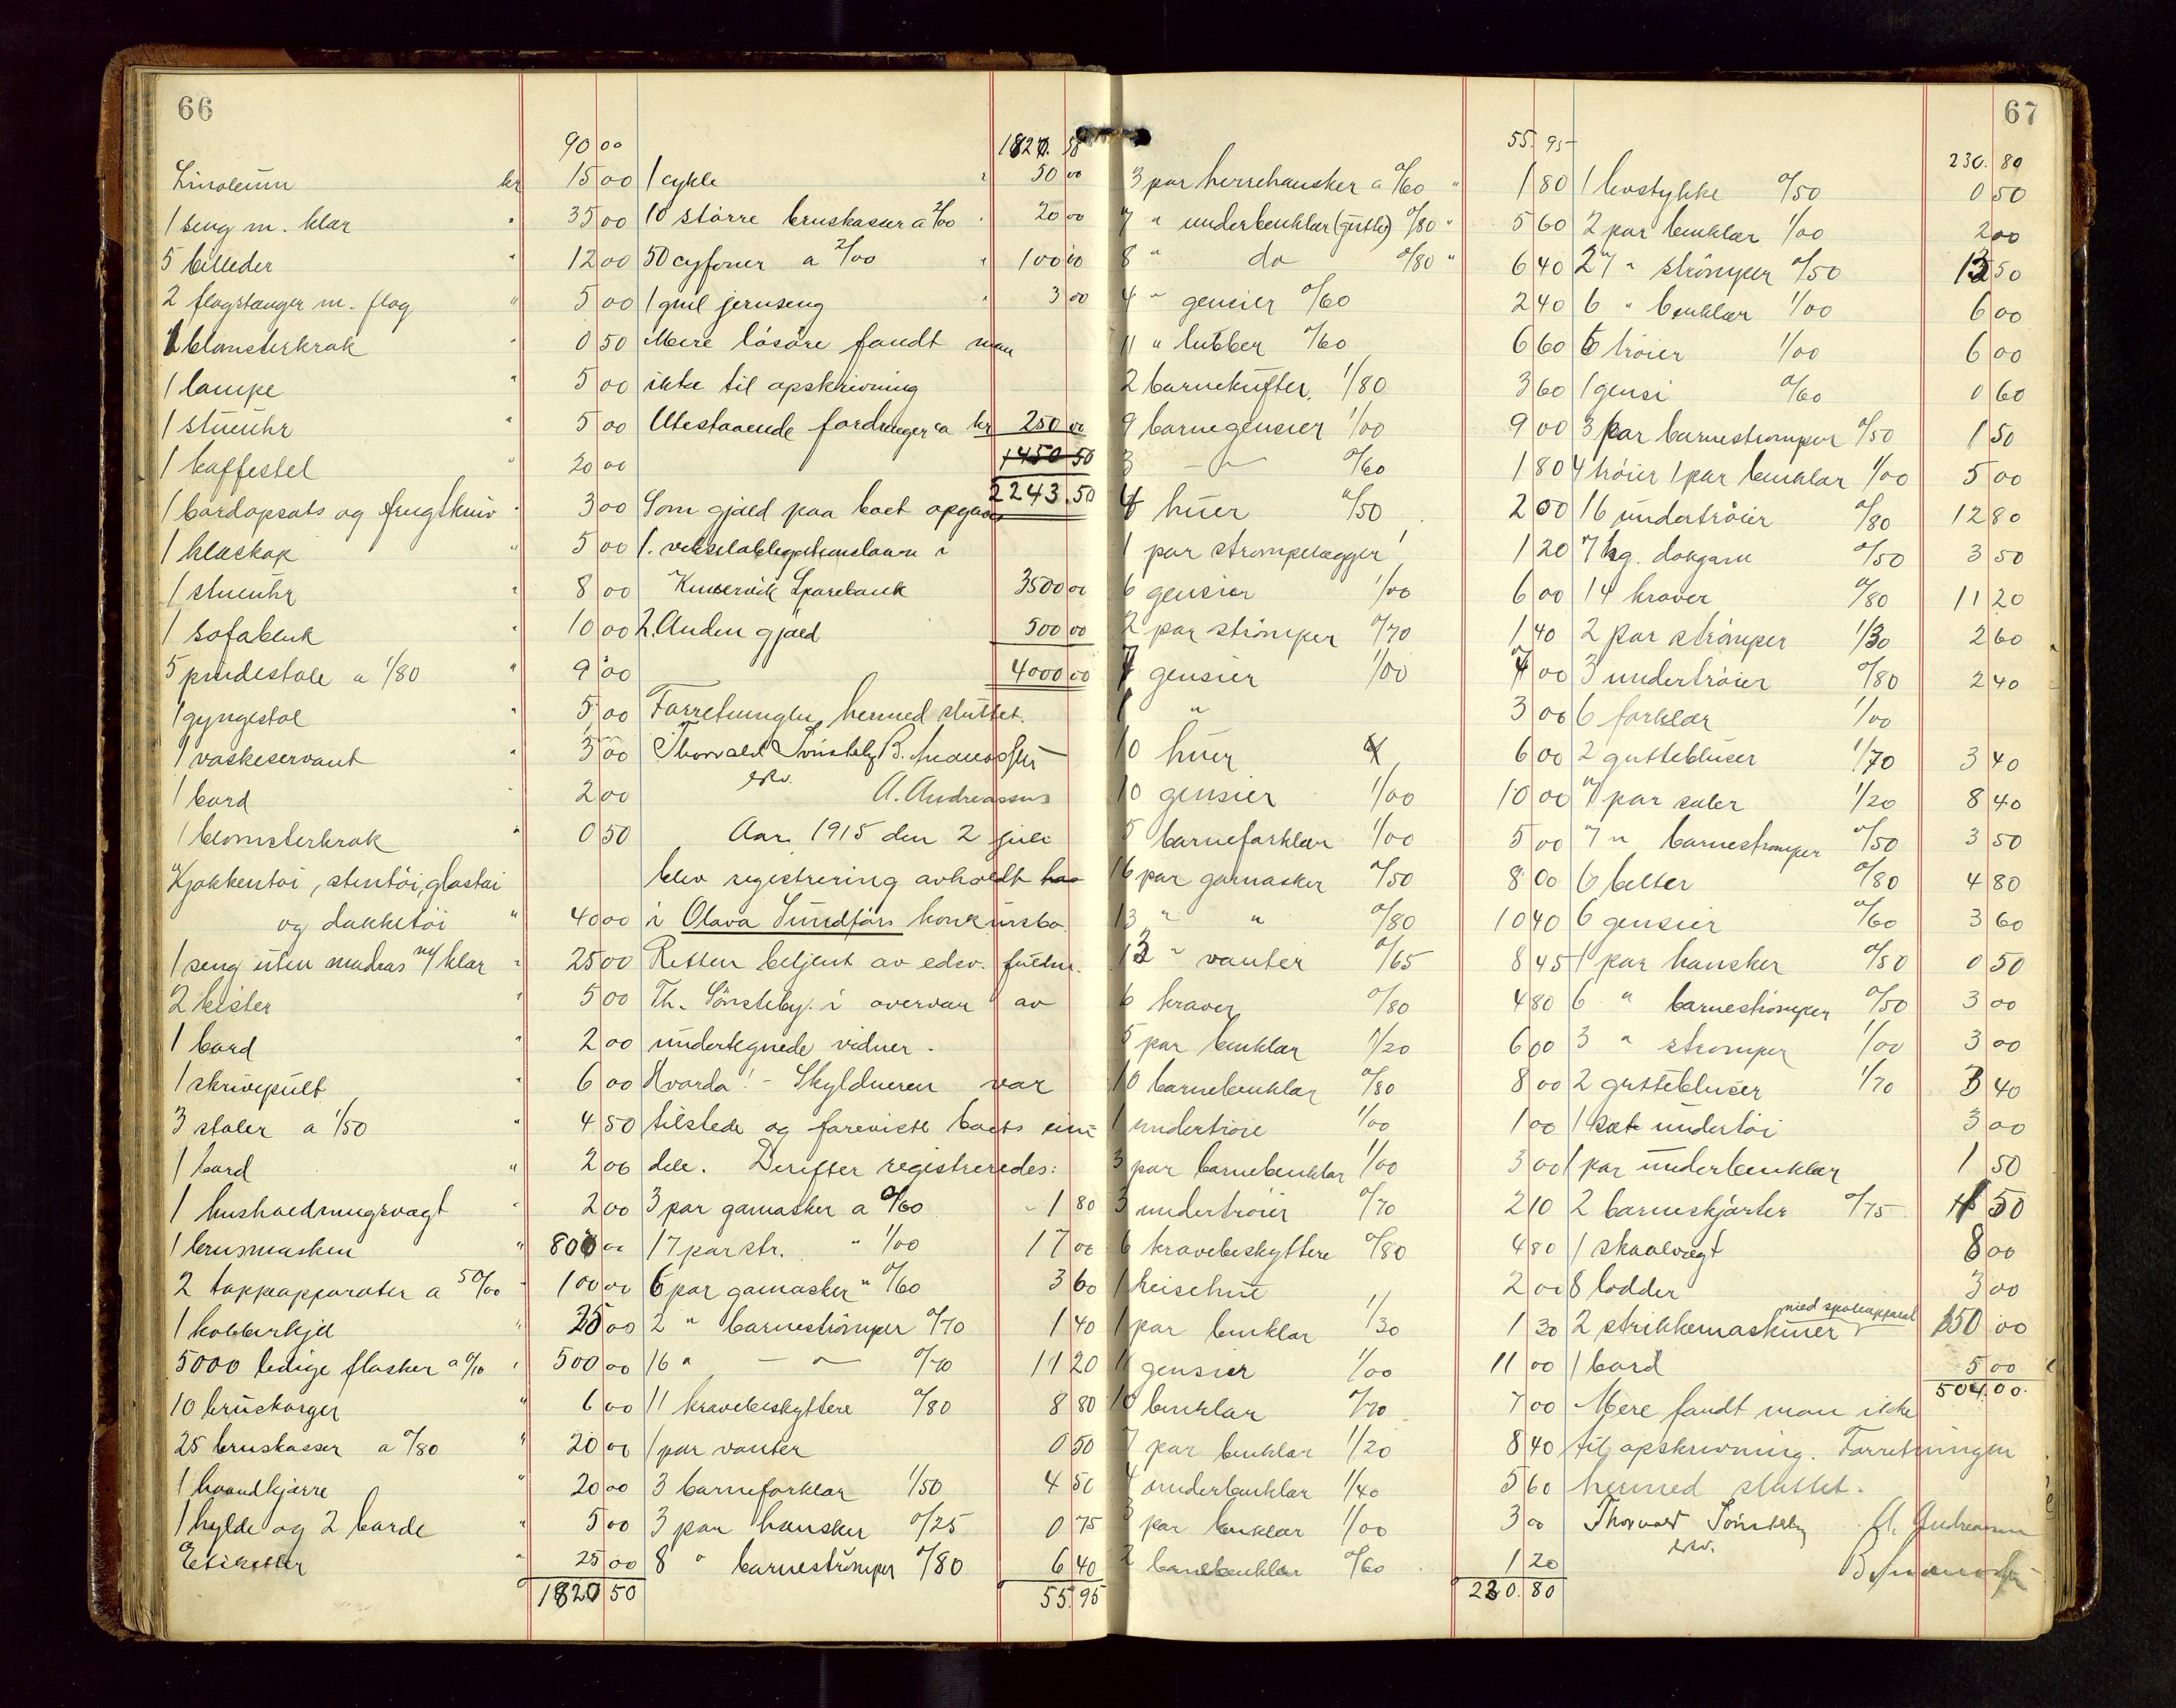 66
90 00
Linoleum kr 15 00
1 seng m. klær " 35 00
5 billeder " 12 00
2 flagstanger m. flag " 5 00
1 blomsterkrak " 0 50
1 lampe " 5 00
1 stueuhr " 5 00
1 kaffestel " 20 00
1 bordopsats og frugtkniv " 3 00
1 klæskap " 5 00
1 stueuhr " 8 00
1 sofabenk " 10 00
5 pindestole a 1/80 " 9 00
1 gyngestol " 5 00
1 vaskeservant " 3 00
1 bord " 2 00
1 blomsterkrak " 0 50
Kjøkkentøi, stentøi, glastøi
og dækketøi " 40 00
1 seng uten madras m/ klær " 25 00
2 kister " 5 00
1 bord " 2 00
1 skrivepult " 6 00
3 stoler a 1/50 " 4 50
1 bord " 2 00
1 husholdningsvegt " 2 00
1 brusmaskin " 800 00
2 tappeapparater a 50/00 " 100 00
1 kobberkjel " 25 00
5000 ledige flasker a 0/10 " 500 00
10 bruskorger " 6 00
25 bruskasser a 0/80 " 20 00
1 haandkjærre " 20 00
1 hylde og 2 borde " 5 00
Etiketter " 25 00
1820 50
1820. 50
1 cykle " 50 00
10 større bruskasser a 2/00 " 20 00
50 cyfoner a 2/00 " 100 00
1 gml jernseng " 3 00
Mere løsøre fandt man
ikke til opskrivning
Utestaaende fordringer ca kr 250 00
1450 50
2243.50
Som gjæld paa boet opgaves
1. vekselobligationslaan i
Kinservik Sparebank 3500 00
2. Anden gjæld 500 00
4000 00
Forretningen hermed sluttet.
Thorvald Sönsteby
edsv.
A. Andreassen
Aar 1915 den 2 juli
blev registrering avholdt hos
i Olava Sundførs konkursbo.
Retten betjent av edsv. fuldm.
Th. Sönsteby i overvær av
undertegnede vidner.
Hvorda! - Skyldneren var
tilstede og foreviste boets eien
dele. Derefter registreredes:
3 par gamasker a 0/60 " 1 80
17 par str. " 1/00 17 00
6 par gamasker " 0/60 3 60
2 " barnestrømper 0/70 1 40
16 " — " — 0/70 11 20
11 kravebeskyttere 0/80 8 80
1 par vanter 0 50
3 barneforklær 1/50 4 50
3 par hansker 0/25 0 75
8 " barnestrømper 0/80 6 40
55.95
67
55. 95
3 par herrehansker a 0/60 " 1 80
7 " underbenklær (gutte) 0/80 " 5 60
8 " do 0/80 " 6 40
4 " gensier 0/60 2 40
11 " lubber 0/60 6 60
2 barnekufter 1/80 3 60
9 barnegensier 1/00 9 00
3 — " — 0/60 1 80
4 huer 0/50 2 00
1 par strømpelægger 1 20
6 gensier 1/00 6 00
2 par strømper 0/70 1 40
7 gensier 1/00 7 00
" 3 00
10 huer 6 00
10 gensier 1/00 10 00
5 barneforklær 1/00 5 00
16 par gamasker 0/50 8 00
13 " " 0/80 10 40
13 " vanter 0/65 8 45
6 kraver 0/80 4 80
5 par benklær 1/20 6 00
10 barnebenklær 0/80 8 00
1 undertrøie 1/00 1 00
3 par barnebenklær 1/00 3 00
3 undertrøier 0/70 2 10
6 kravebeskyttere 0/80 4 80
1 reisehue 2 00
1 par benklær 1/30 1 30
11 gensier 1/00 11 00
10 benklær 0/70 7 00
7 par benklær 1/20 8 40
4 underbenklær 1/40 5 60
3 par benklær 1/00 3 00
2 barnebenklær 0/60 1 20
230.80
230. 80
1 livstykke 0/50 0 50
2 par benklær 1/00 2 00
27 " strømper 0/50 13 50
6 " benklær 1/00 6 00
6 trøier 1/00 6 00
1 gensi 0/60 0 60
3 par barnestrømper 0/50 1 50
4 trøier 1 par benklær 1/00 5 00
16 undertrøier 0/80 12 80
7 hg. dokgarn 0/50 3 50
14 kraver 0/80 11 20
2 par strømper 1/30 2 60
3 undertrøier 0/80 2 40
6 forklær 1/00
2 guttebluser 1/70 3 40
7 par saler 1/20 8 40
7 " barnestrømper 0/50 3 50
6 belter 0/80 4 80
6 gensier 0/60 3 60
1 par hansker 0/50 0 50
6 " barnestrømper 0/50 3 00
3 " strømper 1/00 3 00
2 guttebluser 1/70 3 40
1 sæt undertøi 3 00
1 par underbenklær 1 50
2 barneskjørter 0/75 1 50
1 skaalvegt 8 00
8 lodder 3 00
med spoleapparat
2 strikkemaskiner 150 00
1 bord 5 00
504.00.
Mere fandt man ikke
til opskrivning. Forretningen
hermed sluttet.
Thorvald Sönsteby A. Andreassen
edsv.